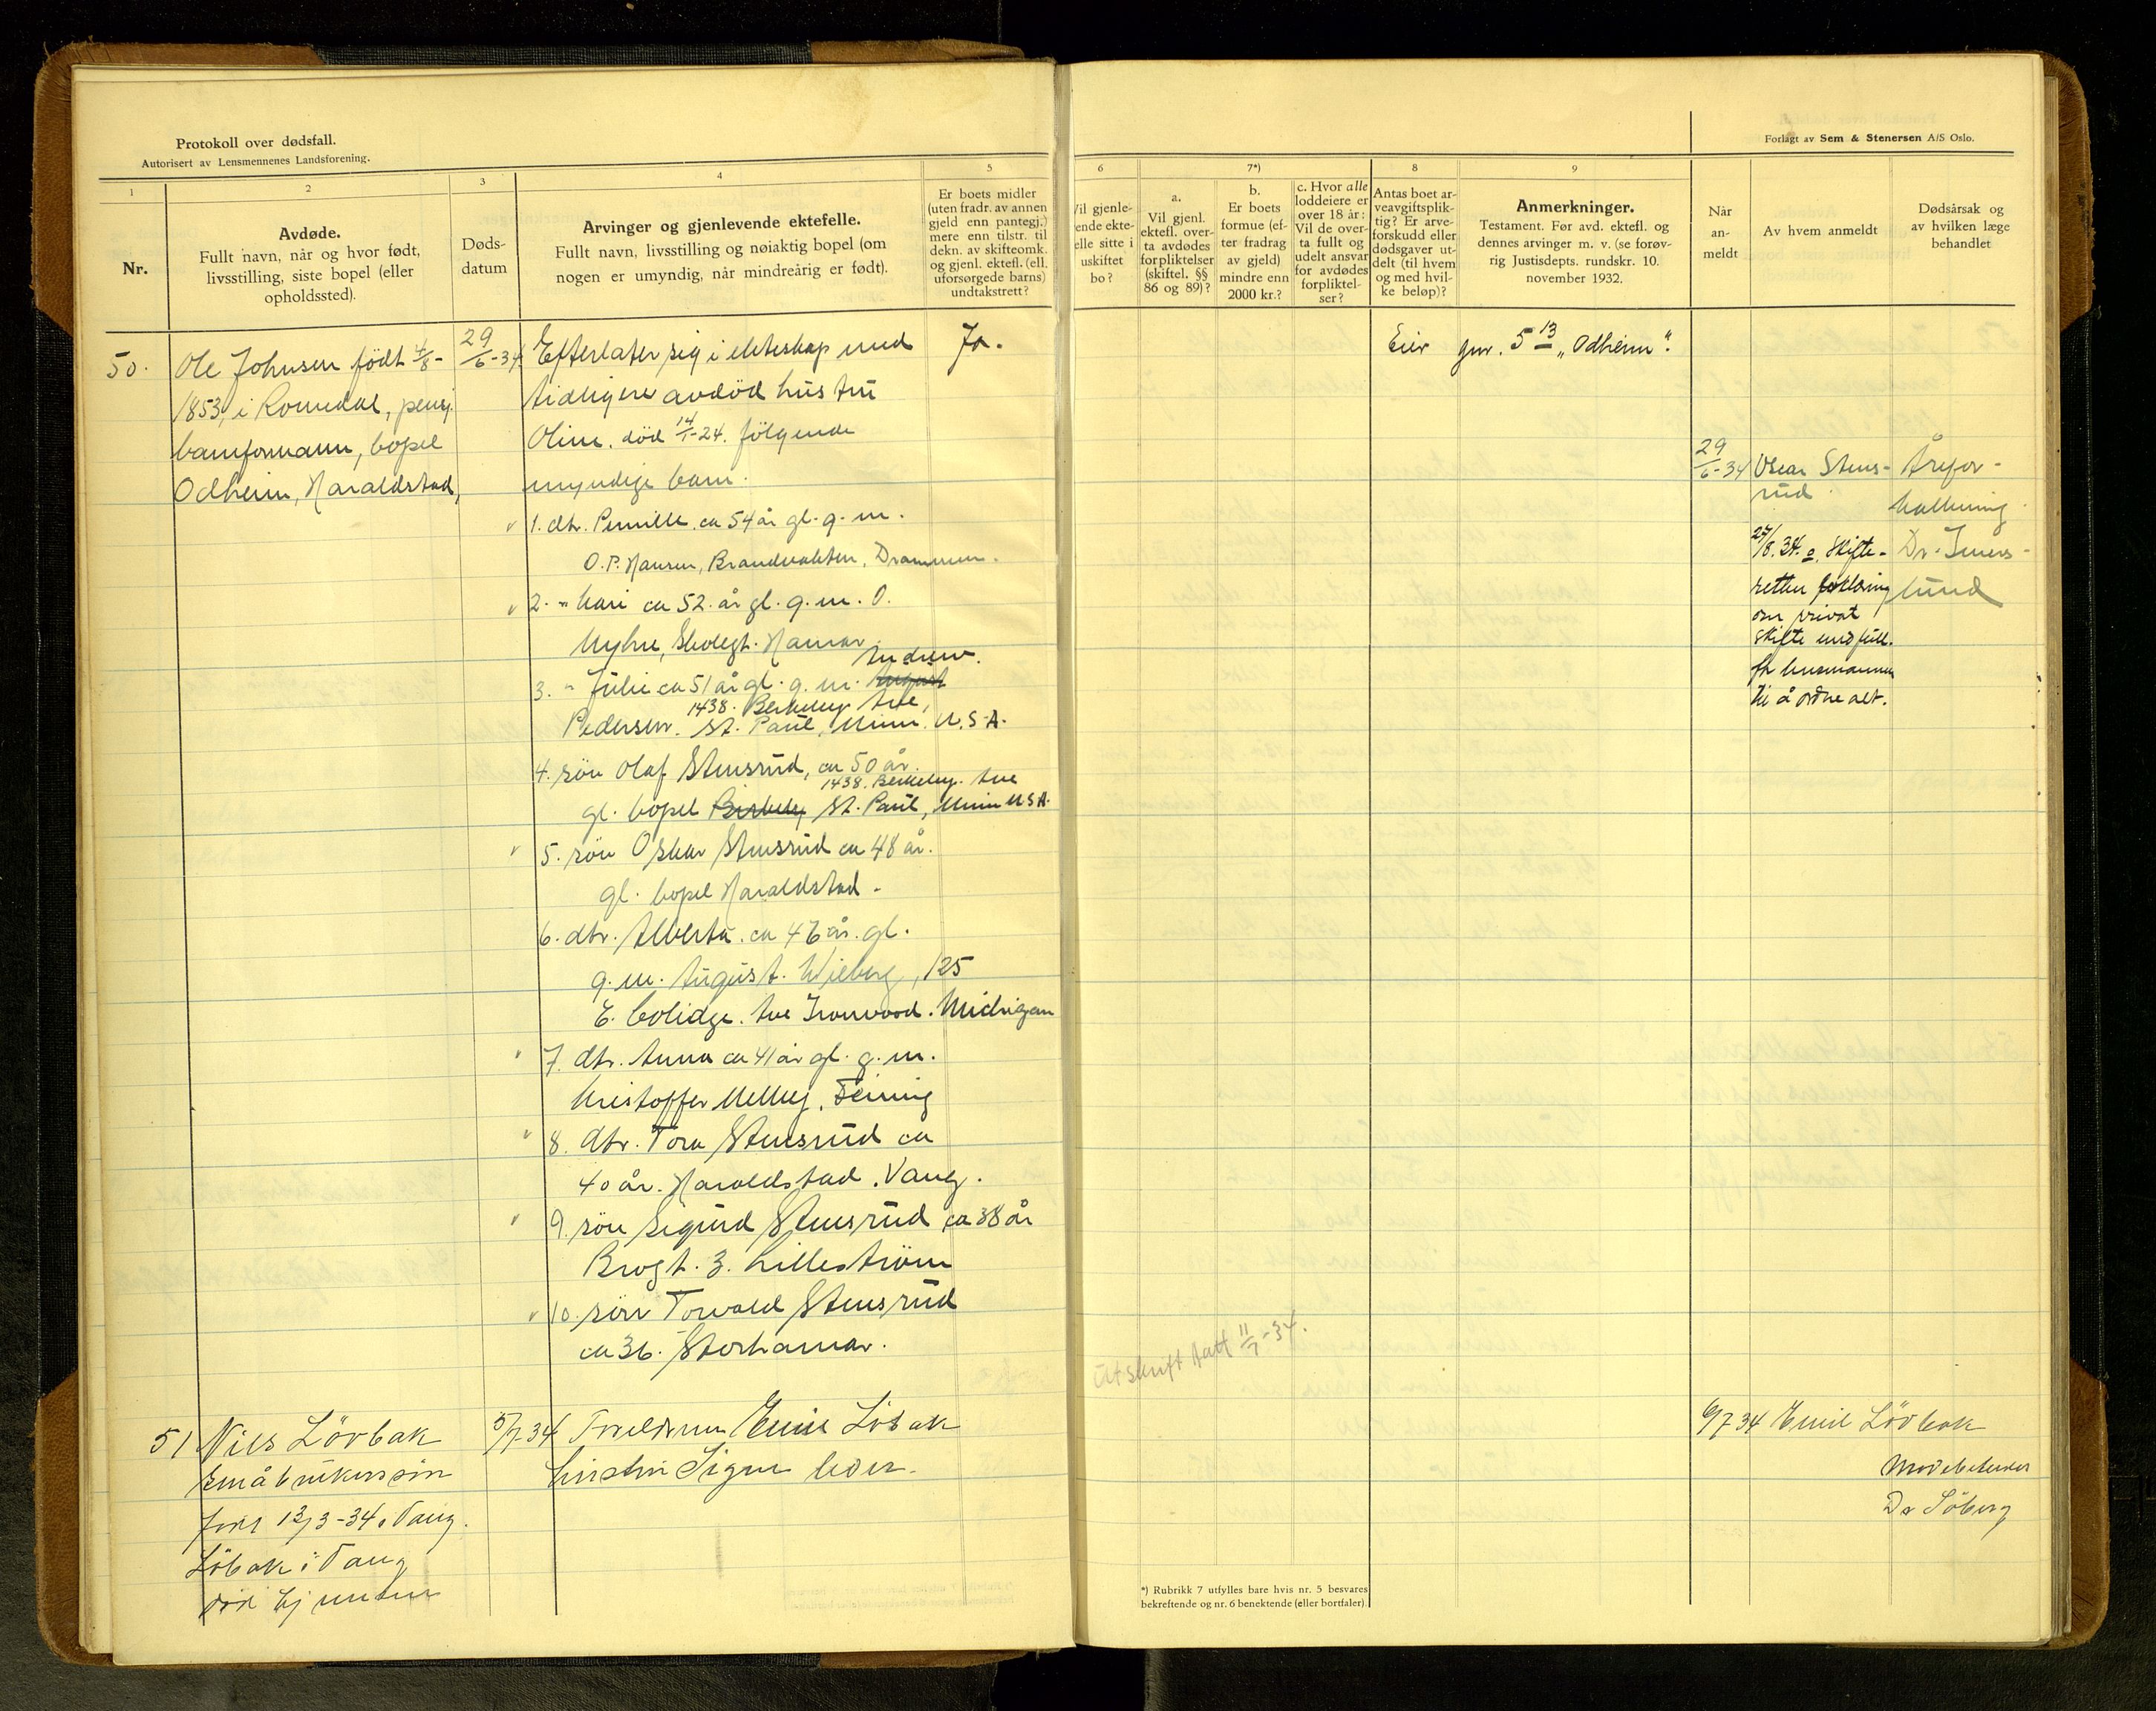 Protokoll over dødsfall.
Autorisert av Lensmennenes Landsforening.
Forlagt av Sem & Stenersen A/S Oslo.
1
2
3
4
5
6
7*)
8
9
Nr.
Avdøde.
Fullt navn, når og hvor født,
livsstilling, siste bopel (eller
opholdssted).
Døds-
datum
Arvinger og gjenlevende ektefelle.
Fullt navn, livsstilling og nøiaktig bopel (om
nogen er umyndig, når mindreårig er født).
Er boets midler
(uten fradr. av annen
gjeld enn pantegj.)
mere enn tilstr. til
dekn. av skifteomk.
og gjenl. ektef. (ell.
uforsørgede barns)
undtakstrett?
Vil gjenle-
ende ekte-
elle sitte i
uskiftet
bo?
a.
Vil gjenl.
ektefl. over-
ta avdødes
forpliktelser
(skiftel. §§
86 og 89)?
b.
Er boets
formue (ef-
ter fradrag
av gjeld)
mindre enn
2000 kr.?
c. Hvor alle
loddeiere er
over 18 år:
Vil de over-
ta fullt og
udelt ansvar
for avdødes
forpliktel-
ser?
Antas boet ar-
veavgiftsplik-
tig? Er arve-
forskudd eller
dødsgaver ut-
delt (til hvem
og med hvil-
ke beløp)?
Anmerkninger.
Testament. Før avd. ektefl. og
dennes arvinger m. v. (se forøv-
rig Justisdepts. rundskr. 10.
november 1932.
Når
an-
meldt
Av hvem anmeldt
Dødsårsak og
av hvilken læge
behandlet
50.
Ole Johnsen født 4/8-
1853, i Romedal, pensj.
baneformann, bopel
Odheim, Haraldstad,
29/6-34
Efterlater sig i ekteskap med
tidligere avdöd hustru
Oline. död 14/1-24. fölgende
myndige barn.
1. dtr. Pernille. ca 54 år gl. g. m.
O. P. Hansen, Brandvakten, Drammen.
2. " Kari ca 52. år gl. g. m. O.
Myhre, Skolegt. Hamar
3. " Julie ca 51 år gl. g. m. August Andrew.
1438. Berkeley Ave,
Pedersen. St. Paul, Minn. U.S.A.
4. sön Olaf Stensrud, ca 50 år.
1438. Berkeley. Ave
gl. bopel Berkeley St. Paul, Minn U.S.A.
5. sön Oskar Stensrud ca 48 år.
gl. bopel Haraldstad.
6. dtr. Alberta. ca 46 år. gl.
g. m. August. Wiberg, 125
E. Colidge. Ave Ironwood. Michigan
7. dtr. Anna ca 41 år gl. g. m.
Kristoffer Melby, Feiring
8. dtr. Tora Stensrud ca
40 år. Haraldstad. Vang.
9. sön Sigurd Stensrud ca 38 år
Brogt. 3. Lilleström
10. sön Torvald Stensrud
ca 36. Storhamar.
Ja.
Eier gnr. 5 13 "Odheim".
29/6-34
Oscar Stens-
rud
27/8.34. e. Skifte-
retten erklæring
om privat
skifte med full.
for lensmannen
til å ordne alt.
Årefor-
kalkning
Dr. Imers-
lund
Utskrift tatt 11/7-34.
51
Nils Lövbak
småbrukersön
född 12/3-34 i Vang.
Löbak i Vang
5/7-34
Foreldrene Emil Löbak
hustru Signe
6/7 34
Emil Lövbak
Dr Söberg
*) Rubrikk 7 utfylles bare hvis nr. 5 besvares
bekreftende og nr. 6 benektende (eller bortfaler).